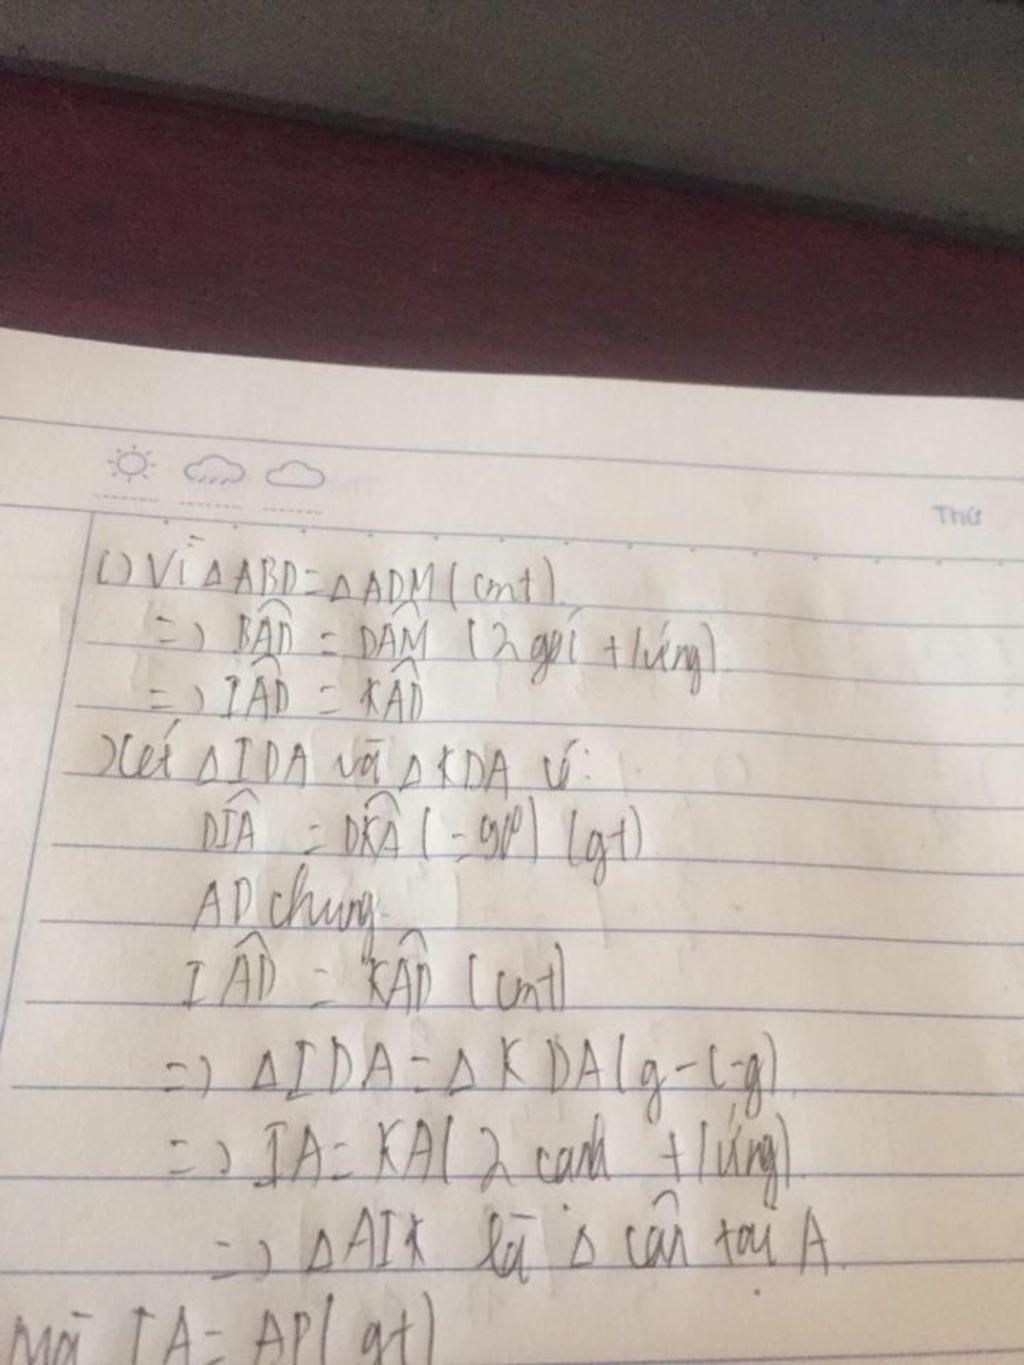 Thứ
c) Vì ΔABD = ΔADM (cmt)
=> BÂD = DÂM (2 góc t/ứng)
=> IÂD = KÂD
Xét ΔIDA và ΔKDA có:
DÎA = DK̂A (=90°) (gt)
AD chung
IÂD = KÂD (cmt)
=> ΔIDA = ΔKDA (g-c-g)
=> IA = KA (2 cạnh t/ứng)
=> ΔAIK là Δ cân tại A
Mà IA = AP (gt)